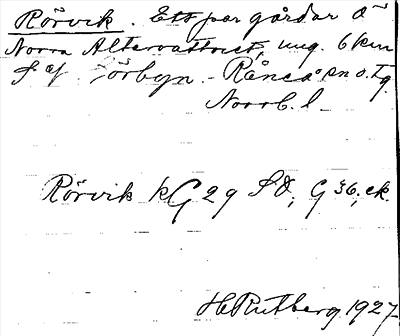 Rörvik. Ett par gårdar å
Norra Altervattnet, ung. 6 km
S af Sörbyn. Råneå sn o. tg.
Norrb. l.
Rörvik kG 29 SO, G 36, ek.
H Rutberg 1927